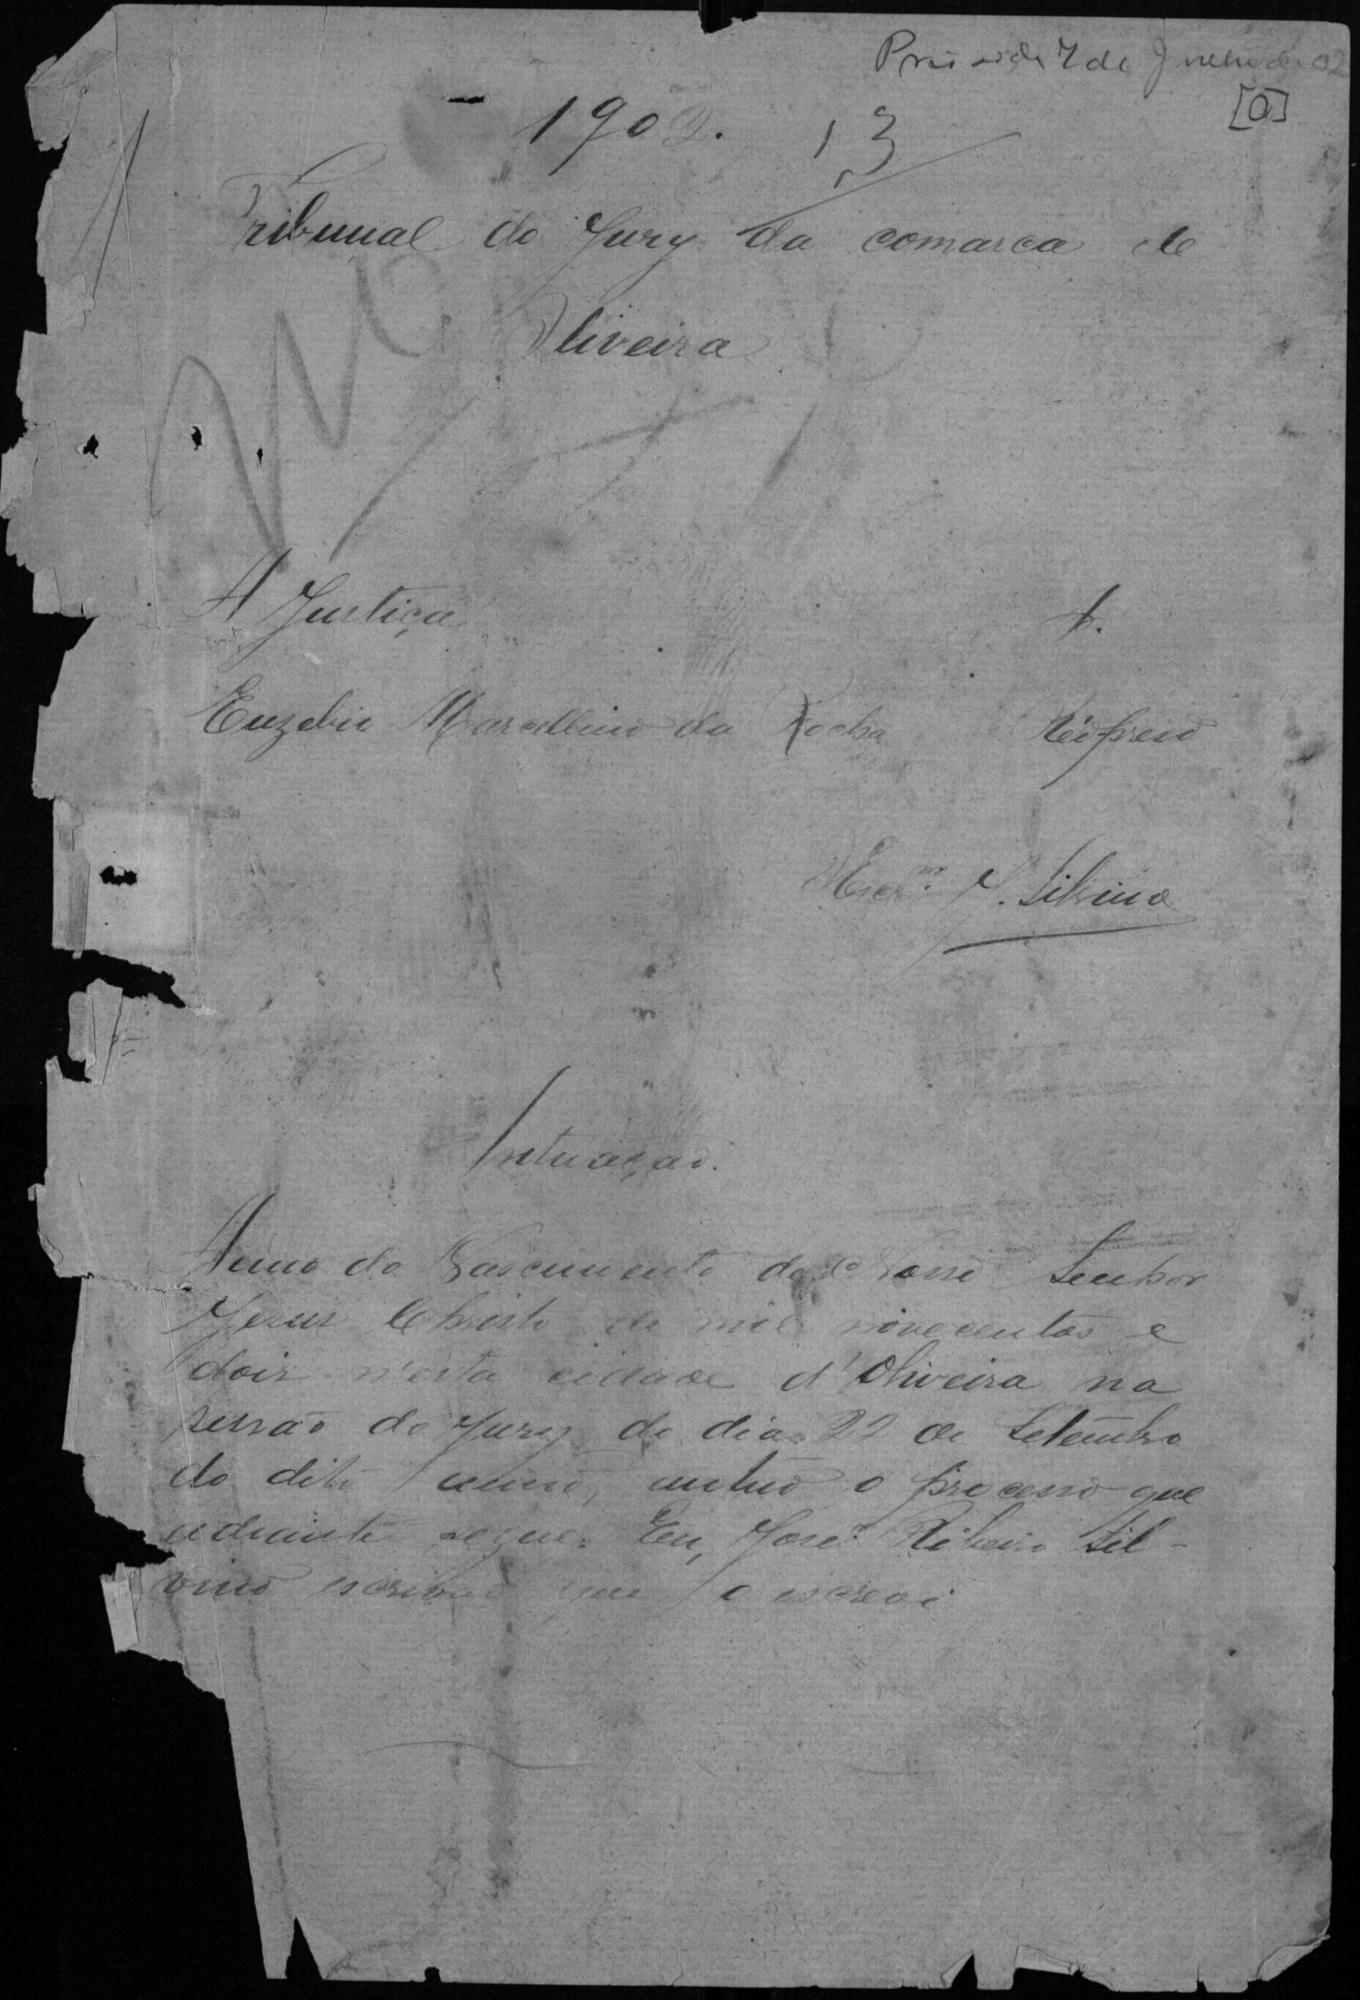 Prisão de 7 de Junho de 02
[0]
1902. 13
Tribunal do Jury da comarca de
Oliveira
A Justiça A.
Euzebio Marcellino da Rocha Réo preso
Escr.m J. Silvino
Autuação.
Anno do Nascimento de Nosso Senhor
Jesus Christo de mil novecentos e
dois n'esta cidade d'Oliveira na
sessão do Jury do dia 22 de Setembro
do dito anno, autuo o processo que
adiante segue. Eu, José Ribeiro Sil-
vino escrivão que o escrevi